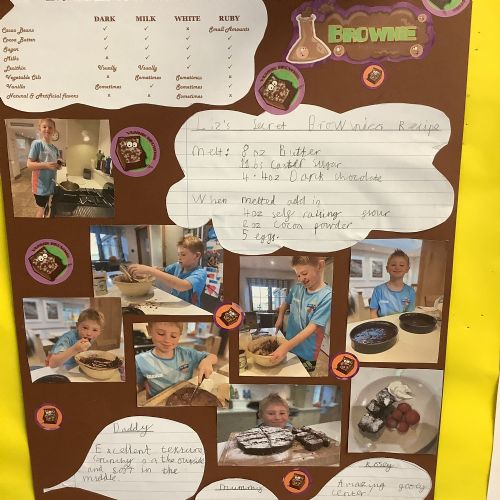 DARK MILK WHITE RUBY
Cocoa Beans ✓ ✓ x Small Amounts
Cocoa Butter ✓ ✓ ✓ ✓
Sugar ✓ ✓ ✓ ✓
Milk
Usually Usually
Vegetable Oils x Sometimes Sometimes x
Vanilla Sometimes Sometimes x
Natural & Artificial flavors x x x
BROWNIE
Liz's Secret Brownies Recipe
Melt: 8 oz Butter
Caster Sugar
4.4oz Dark chocolate
When melted add in
4oz self raising flour
2oz Cocoa powder
5 eggs.
Daddy
Excellent texture
on the outside
and soft in the
middle
Mummy
Rosey
Amazing gooey
center